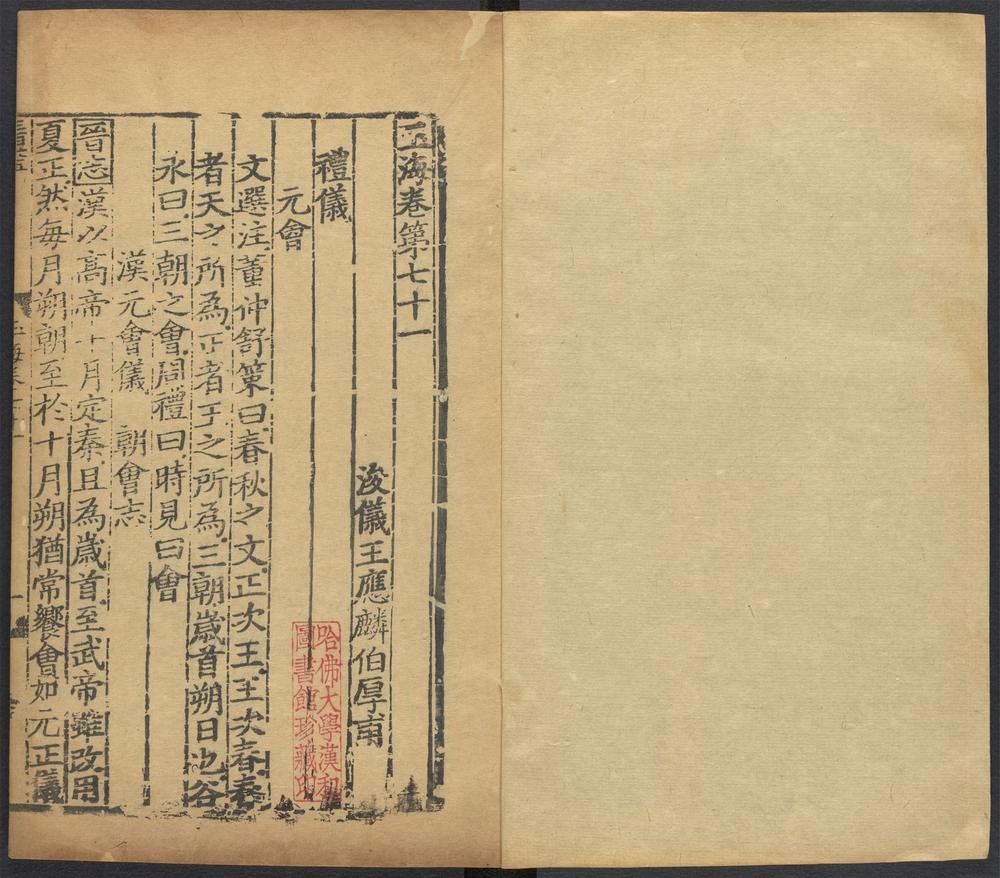 玉海卷第七十一
浚儀王應麟伯厚甫
禮儀
元會
文選注董仲舒策曰春秋之文正次王王次春春
者天之所為正者王之所為三朝歲首朔日也谷
永曰三朝之會周禮曰時見曰會
漢元會儀 朝會志
晉志漢以高帝十月定秦且為歲首至武帝雖改用
夏正然每月朔朝至於十月朔猶常饗會如元正儀
哈佛大學漢和
圖書館珍藏印